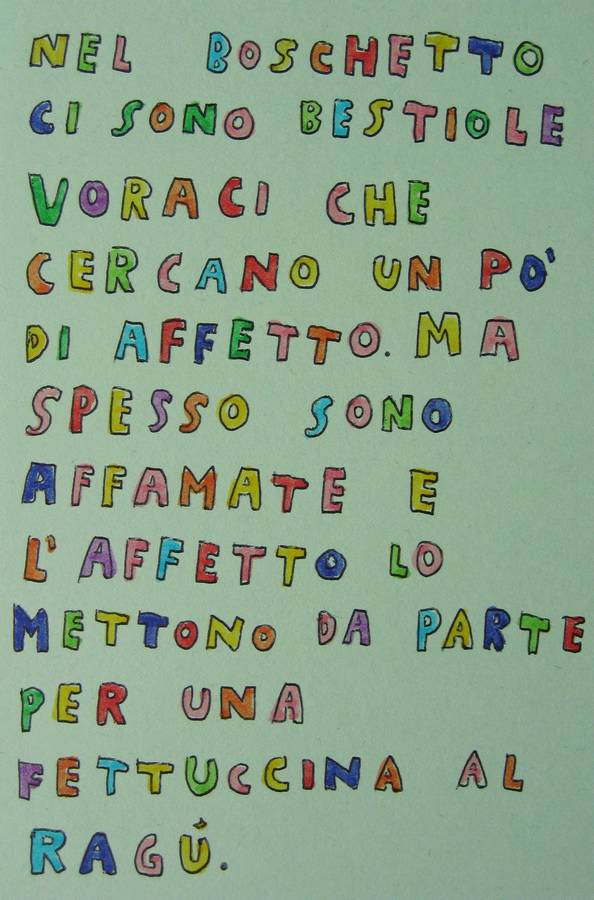 NEL BOSCHETTO
CI SONO BESTIOLE
VORACI CHE
CERCANO UN PO'
DI AFFETTO. MA
SPESSO SONO
AFFAMATE E
L'AFFETTO LO
METTONO DA PARTE
PER UNA
FETTUCCINA AL
RAGÚ.